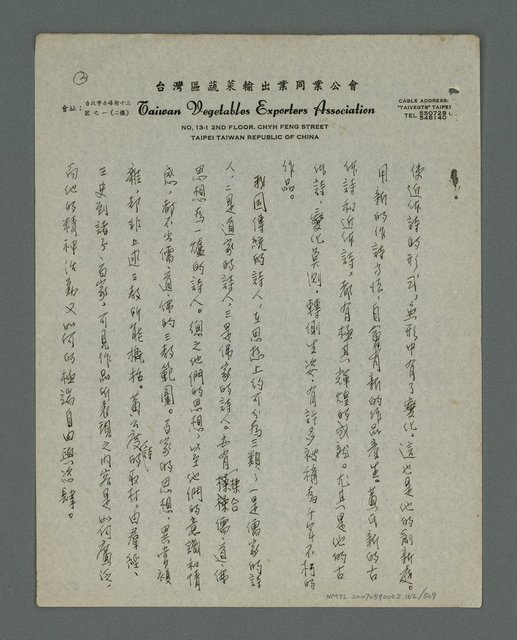 ②
台灣區蔬菜輸出業同業公會
會址：台北市赤峰街十三號之一（二樓）
Taiwan Vegetables Exporters Association
NO. 13-1 2ND FLOOR, CHYH FENG STREET
TAIPEI TAIWAN REPUBLIC OF CHINA
CABLE ADDRESS:
"TAIVEGTS" TAIPEI
TEL 550728
548140
使近体詩的形式，無形中有了變化，這也是他的創新處。
用新的作詩方法，自會有新的作品產生。黃氏新的古
体詩和近体詩，都有極其輝煌的成就。尤其是他的古
体詩，變化莫測，轉側生姿，有許多被稱為千年不朽的
作品。
我国傳統的詩人，在思想上約可分為三類：一是儒家的詩
人，二是道家的詩人，三是佛家的詩人。亦有揉合儒、道、佛
思想為一爐的詩人。總之他們的思想，以至他們的意識和情
感，都不出儒、道、佛的三教範圍。百家的思想，異常複
雜，却非上述三教所能概括。黃公度詩的取材，由羣經、
三史到諸子、百家，可見作品所表現之內容是如何廣泛，
而他的精神活動又如何的極端自由與恣肆。
NMTL 20070590002, 162/509